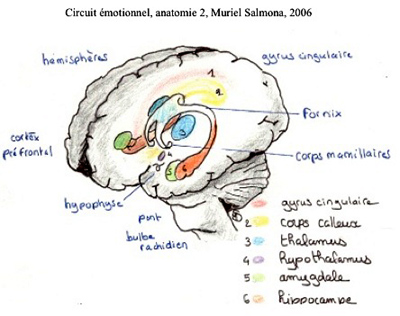 Circuit émotionnel, anatomie 2, Muriel Salmona, 2006
hémisphères
gyrus cingulaire
1
2
fornix
3
cortex
préfrontal
corps mamillaires
4
5
6
hypophyse
pont
bulbe
rachidien
gyrus cingulaire
2 corps calleux
3 thalamus
4 hypothalamus
5 amygdale
6 hippocampe